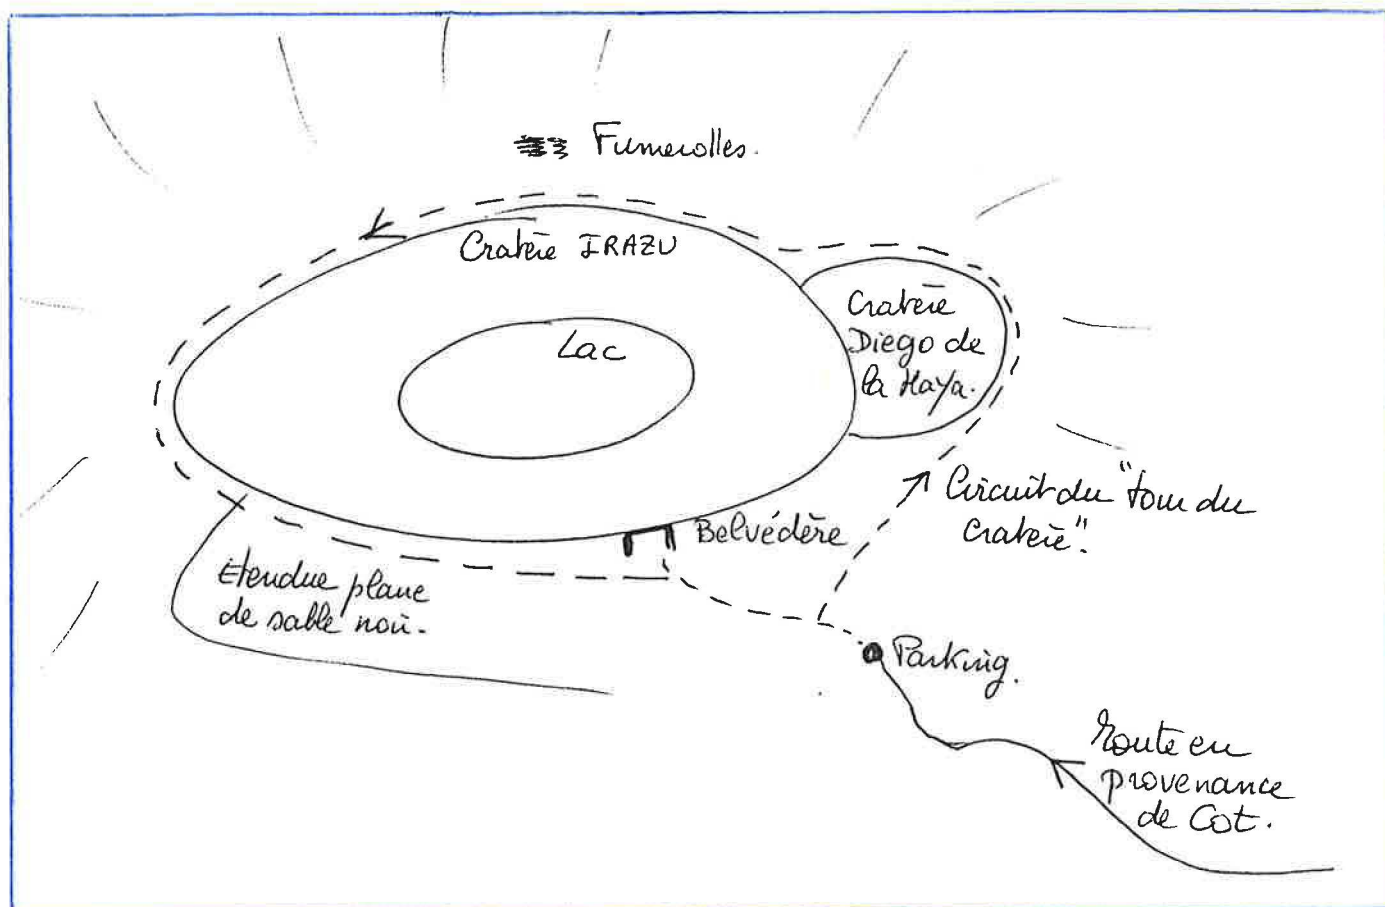 Fumerolles.
Cratère IRAZU
Lac
Cratère
Diego de
la Haya.
Circuit du "tour du
cratère".
Belvédère
Etendue plane
de sable noir.
Parking.
Route en
provenance
de Cot.